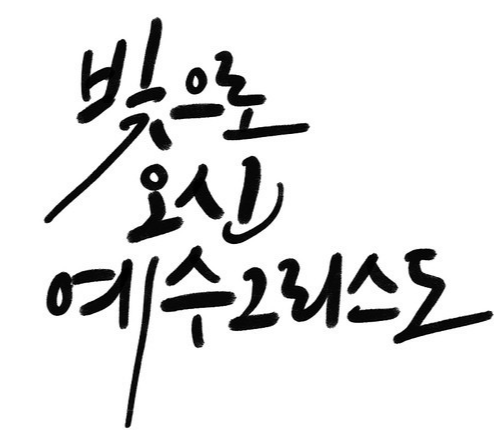 빛으로
오신
예수그리스도